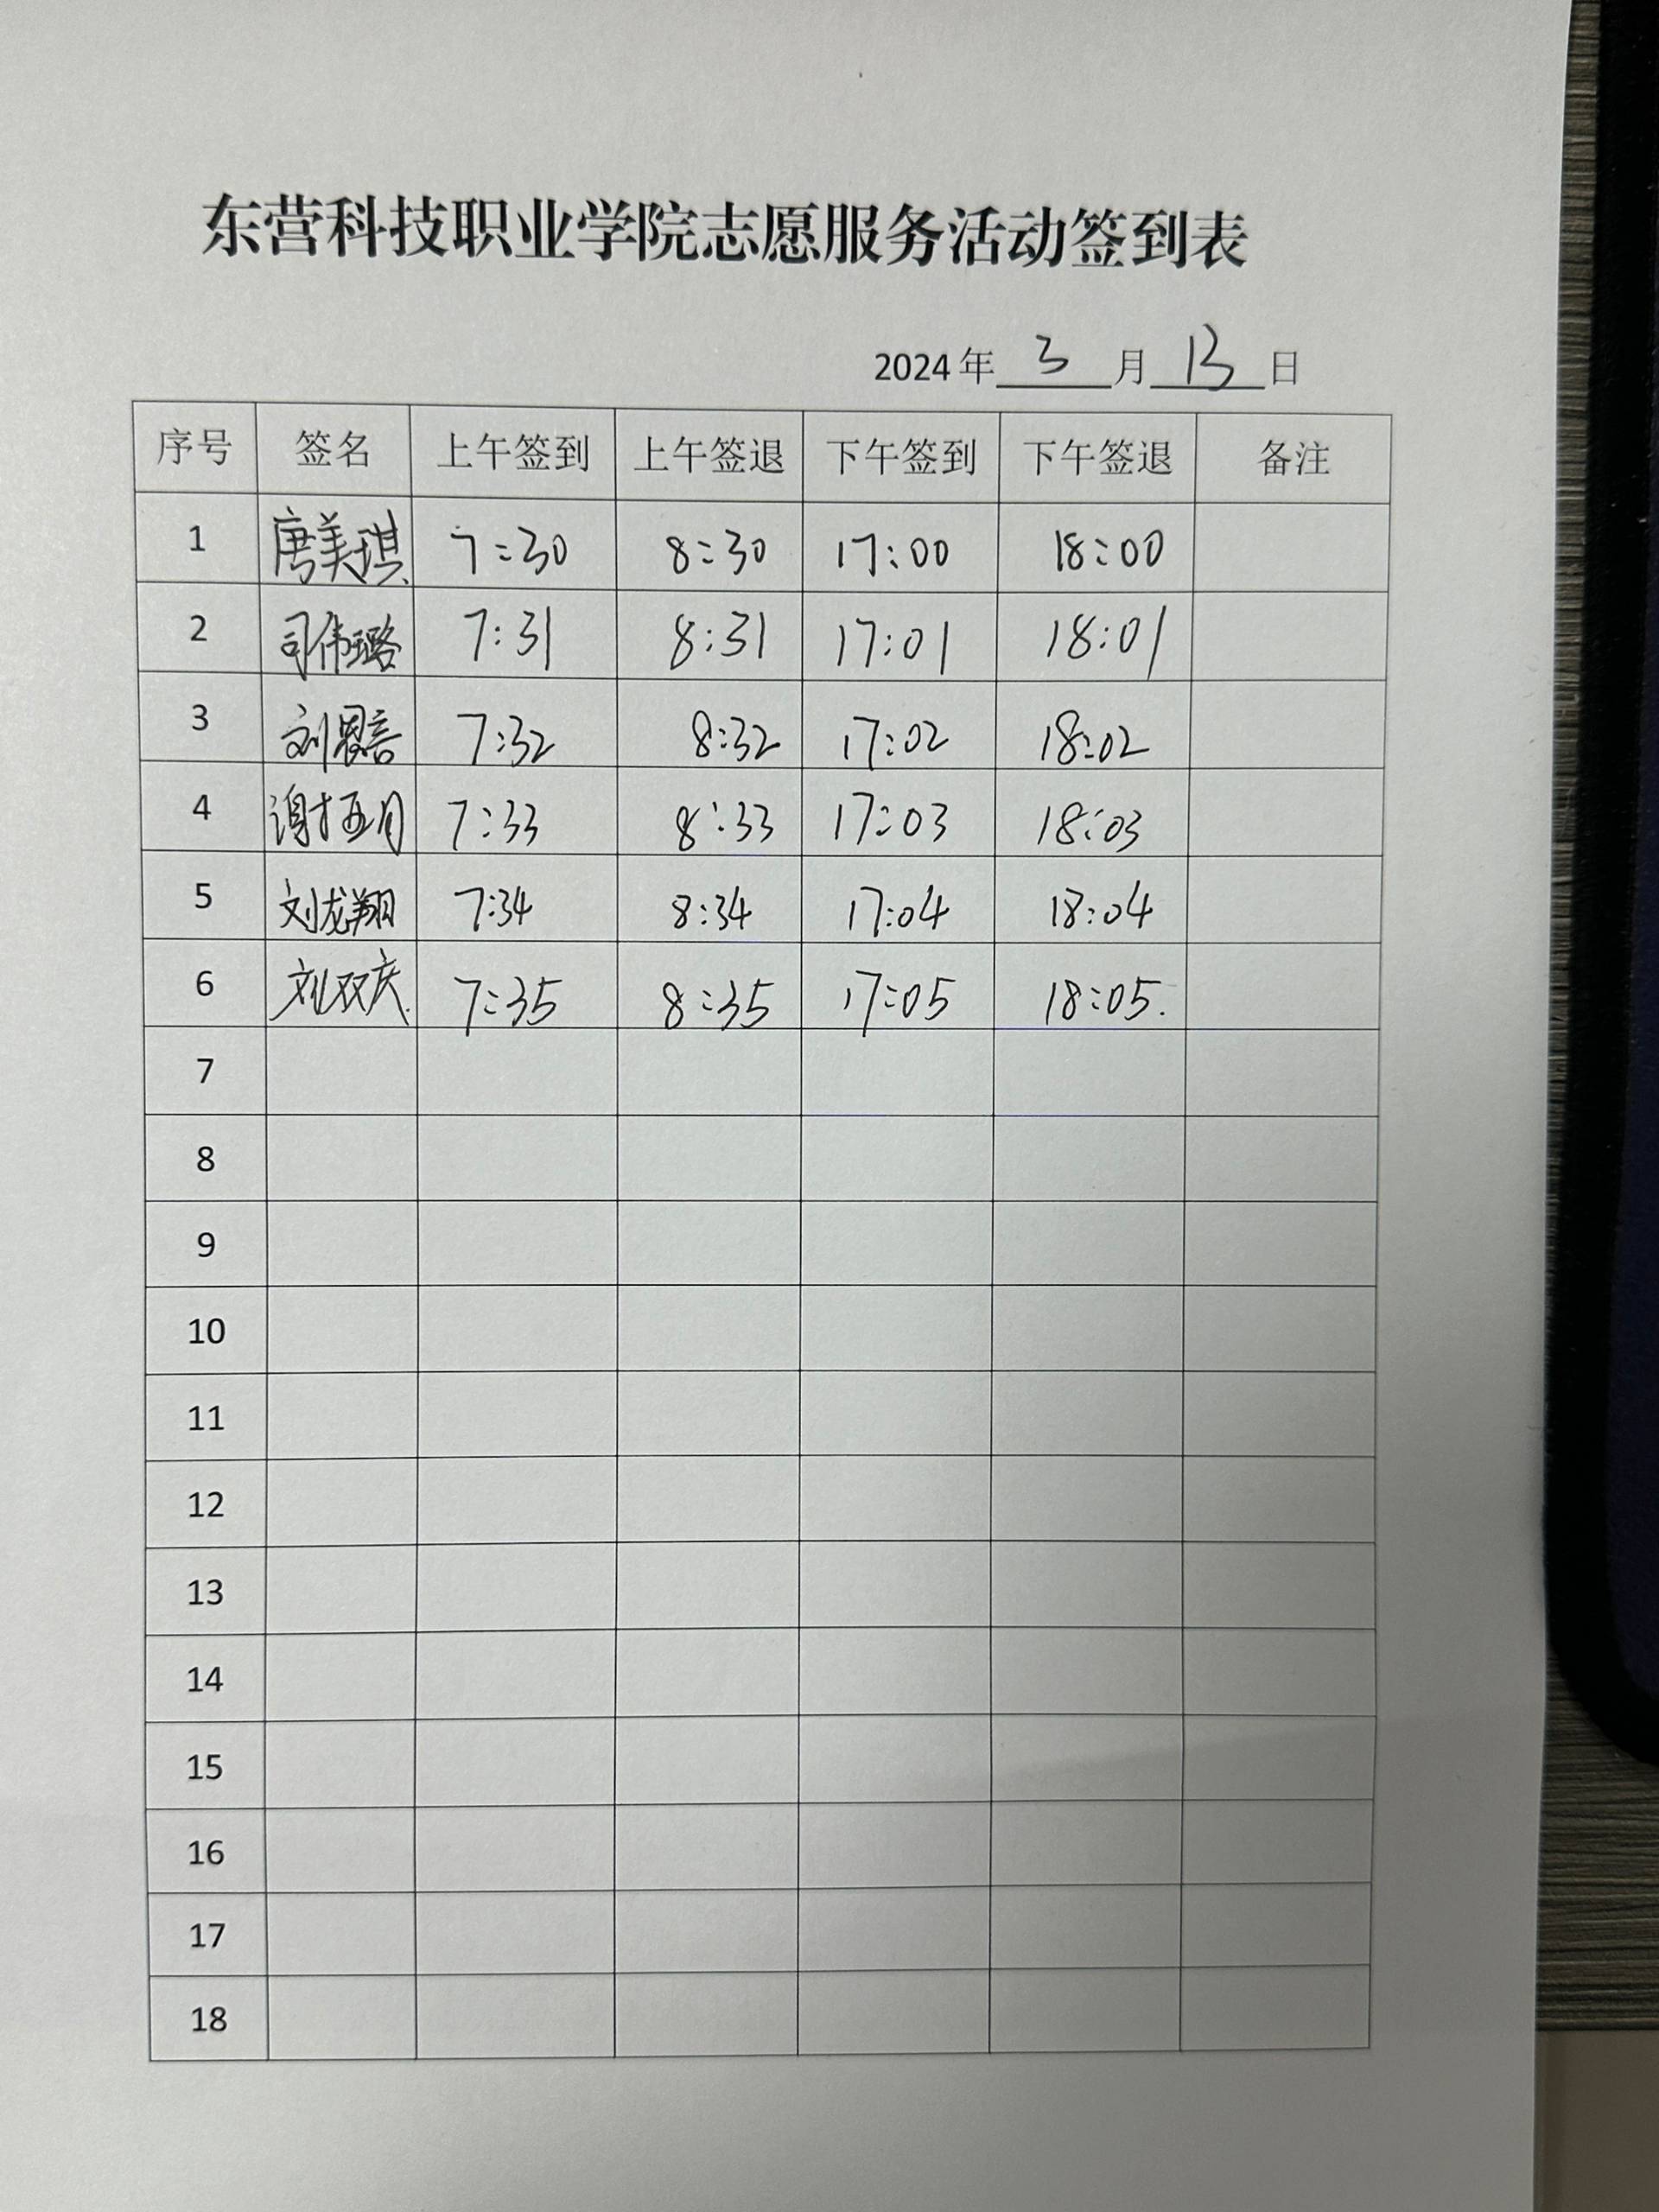 东营科技职业学院志愿服务活动签到表
2024年 3 月 13 日
序号 签名 上午签到 上午签退 下午签到 下午签退 备注
1 唐美琪 7:30 8:30 17:00 18:00
2 司伟璐 7:31 8:31 17:01 18:01
3 刘恩言 7:32 8:32 17:02 18:02
4 7:33 8:33 17:03 18:03
5 刘龙翔 7:34 8:34 17:04 18:04
6 刘双庆 7:35 8:35 17:05 18:05.
7
8
9
10
11
12
13
14
15
16
17
18